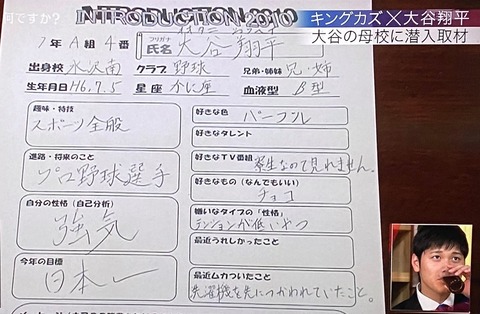 何ですか?
INTRODUCTION 2010
キングカズ×大谷翔平
大谷の母校に潜入取材
1年A組4番
フリガナ
氏名 大谷翔平
出身校 水沢南 クラブ 野球 兄弟・姉妹 兄・姉
生年月日 H6.7.5 星座 かに座 血液型 B型
趣味・特技
スポーツ全般
進路・将来のこと
プロ野球選手
自分の性格(自己分析)
強気
今年の目標
日本一
好きな色 パープル
好きなタレント
好きなTV番組 寮生なので見れません。
好きなもの(なんでもいい)
チョコ
嫌いなタイプの「性格」
テンションが低いやつ
最近うれしかったこと
最近ムカついたこと
洗濯機を先につかわれていたこと。